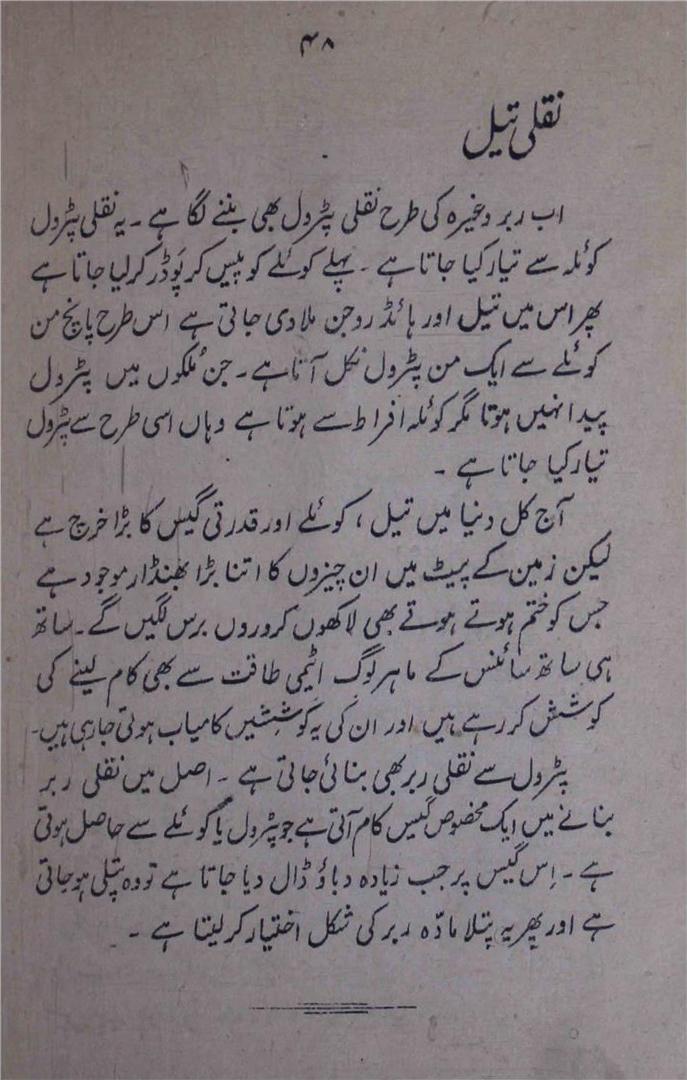 ۴۸
نقلی تیل
اب ربر وغیرہ کی طرح نقلی پٹرول بھی بننے لگا ہے ۔ یہ نقلی پٹرول
کوئلہ سے تیار کیا جاتا ہے ۔ پہلے کوئلے کو پیس کر پَوڈر کر لیا جاتا ہے
پھر اس میں تیل اور ہائڈروجن ملا دی جاتی ہے اس طرح پانچ من
کوئلے سے ایک من پٹرول نکل آتا ہے۔ جن مُلکوں میں پٹرول
پیدا نہیں ہوتا مگر کوئلہ افراط سے ہوتا ہے وہاں اسی طرح سے پٹرول
تیار کیا جاتا ہے ۔
آج کل دنیا میں تیل ، کوئلے اور قدرتی گیس کا بڑا خرچ ہے
لیکن زمین کے پیٹ میں ان چیزوں کا اتنا بڑا بھنڈار موجود ہے
جس کو ختم ہوتے ہوتے بھی لاکھوں کروروں برس لگیں گے۔ ساتھ
ہی ساتھ سائنس کے ماہر لوگ اٹیمی طاقت سے بھی کام لینے کی
کوشش کر رہے ہیں اور ان کی یہ کوشِشیں کامیاب ہوتی جا رہی ہیں۔
پٹرول سے نقلی ربر بھی بنائی جاتی ہے ۔ اصل میں نقلی ربر
بنانے میں ایک مخصوص گیس کام آتی ہے جو پٹرول یا کوئلے سے حاصل ہوتی
ہے ۔ اِس گیس پر جب زیادہ دباؤ ڈال دیا جاتا ہے تو وہ پتلی ہو جاتی
ہے اور پھر یہ پتلا مادّہ ربر کی شکل اختیار کر لیتا ہے ۔